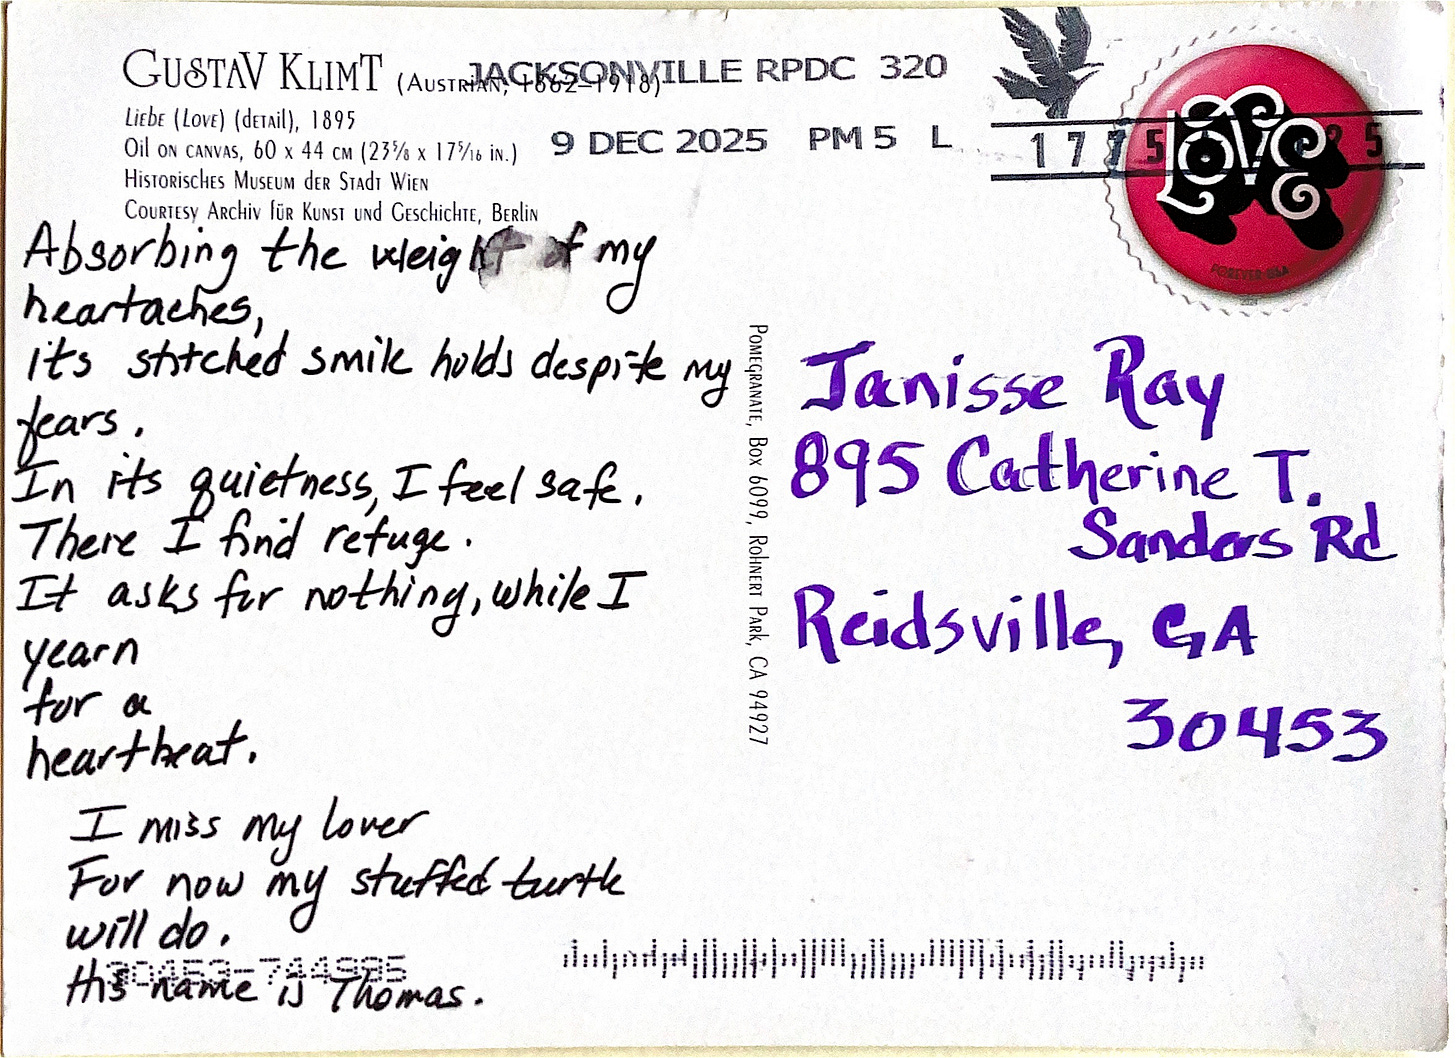 GUSTAV KLIMT (AUSTRIAN, 1862–1918)
JACKSONVILLE RPDC 320
Liebe (Love) (detail), 1895
Oil on canvas, 60 x 44 cm (23⅝ x 17⁵⁄₁₆ in.)
9 DEC 2025 PM 5 L
Historisches Museum der Stadt Wien
Courtesy Archiv für Kunst und Geschichte, Berlin
LOVE
FOREVER USA
Absorbing the weight of my
heartaches,
its stitched smile holds despite my
fears.
In its quietness, I feel safe.
There I find refuge.
It asks for nothing, while I
yearn
for a
heartbeat.
I miss my lover
For now my stuffed turtle
will do.
His name is Thomas.
30453-744995
Pomegranate, Box 6099, Rohnert Park, CA 94927
Janisse Ray
895 Catherine T.
Sanders Rd
Reidsville, GA
30453